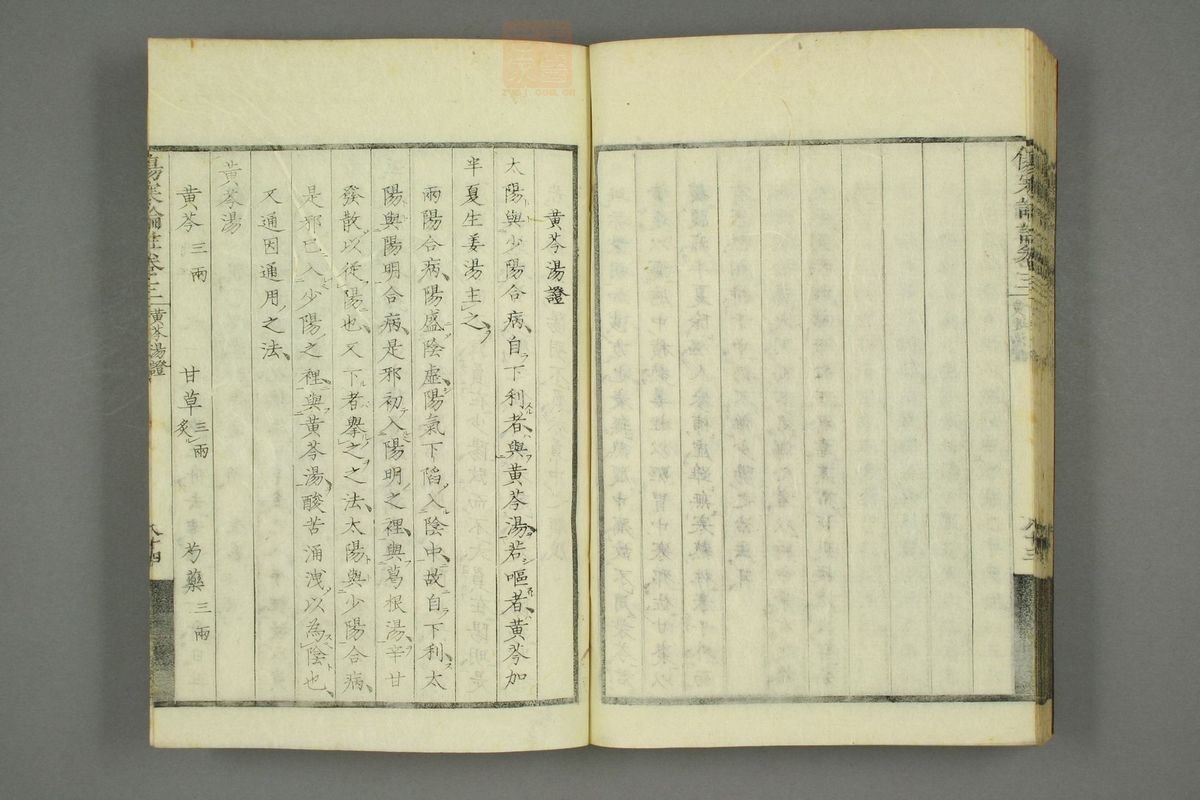 傷寒論註卷三
八十三
黃芩湯證
太陽與少陽合病自下利者與黃芩湯若嘔者黃芩加
半夏生姜湯主之
兩陽合病陽盛陰虛陽氣下陷入陰中故自下利太
陽與陽明合病是邪初入陽明之裡與葛根湯辛甘
發散以從陽也又下者舉之之法太陽與少陽合病
是邪已入少陽之裡與黃芩湯酸苦涌洩以為陰也
又通因通用之法
黃芩湯
黃芩三兩 甘草三兩炙 芍藥三兩
傷寒論註卷三 黃芩湯證 八十四